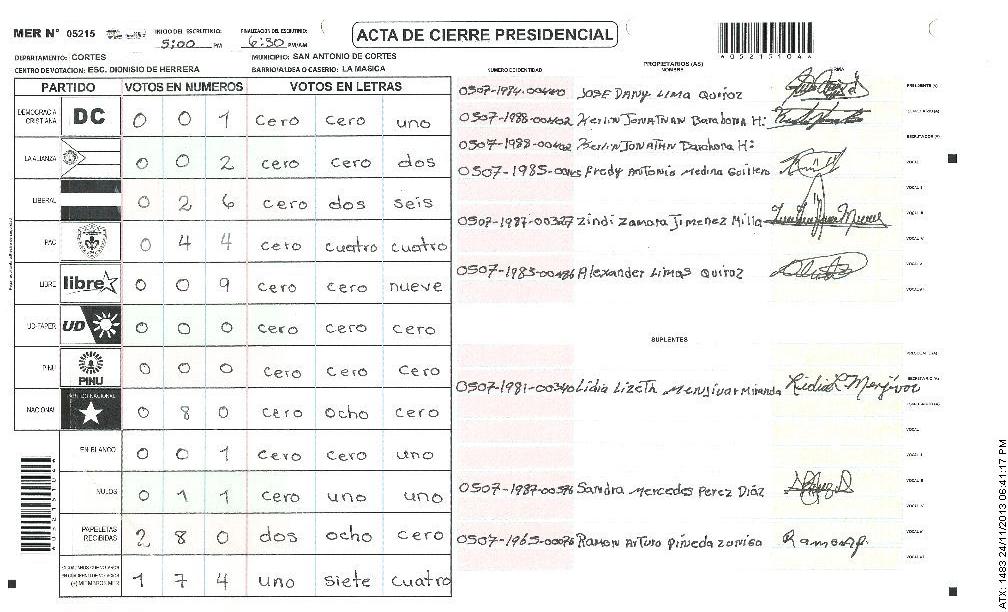 MER N° 05215 INICIO DEL ESCRUTINIO: 5:00 PM FINALIZACION DEL ESCRUTINIO: 6:30 PM/AM
ACTA DE CIERRE PRESIDENCIAL
DEPARTAMENTO: CORTES MUNICIPIO: SAN ANTONIO DE CORTES
CENTRO DE VOTACION: ESC. DIONISIO DE HERRERA BARRIO/ALDEA O CASERIO: LA MASICA
PARTIDO VOTOS EN NUMEROS VOTOS EN LETRAS
DEMOCRACIA CRISTIANA DC 0 0 1 cero cero uno
LA ALIANZA 0 0 2 cero cero dos
LIBERAL 0 2 6 cero dos seis
PAC 0 4 4 cero cuatro cuatro
LIBRE libre 0 0 9 cero cero nueve
UD-FAPER UD 0 0 0 cero cero cero
PINU PINU 0 0 0 cero cero cero
NACIONAL PARTIDO NACIONAL 0 8 0 cero ocho cero
EN BLANCO 0 0 1 cero cero uno
NULOS 0 1 1 cero uno uno
PAPELETAS RECIBIDAS 2 8 0 dos ocho cero
(+) MIEMBROS MER 1 7 4 uno siete cuatro
PROPIETARIOS (AS)
NUMERO IDENTIDAD NOMBRE FIRMA
JOSE DANY LIMA QUIROZ PRESIDENTE (A)
0507-1988-00402 Kerlin JONATHAN Barahona H:
0507-1988-00402 Kerlin JONATHAN Barahona H:
0507-1985-00145 Fredy Antonio Medina
0507-1987-00327 Zindi Zamara Jimenez Milla
0507-1983-00486 Alexander Limas Quiroz
SUPLENTES
0507-1981-00340 Lidia Lizeth Menjivar Miranda
0507-1987-00596 Sandra Mercedes Perez Diáz
0507-1965-00096 Ramon Arturo Pineda
ATX: 1483 24/11/2013 06:41:17 PM